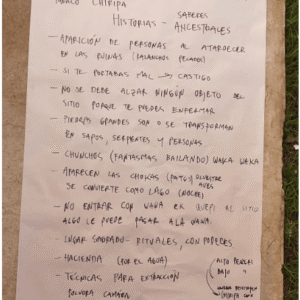 CHIRIPA
HISTORIAS - SABERES
ANCESTRALES
- APARICIÓN DE PERSONAS AL ATARDECER
EN LAS RUINAS (BALANCHOS PELADOS)
- SI TE PORTABAS MAL → CASTIGO
- NO SE DEBE ALZAR NINGÚN OBJETO DEL
SITIO PORQUE TE PUEDES ENFERMAR
- PIEDRAS GRANDES SON O SE TRANSFORMAN
EN SAPOS, SERPIENTES Y PERSONAS
- CHUNCHOS (FANTASMAS BAILANDO) WAKA WAKA
- APARECEN LAS CHOKAS (PATOS) SILVESTRE
AVES
SE CONVIERTE COMO LAGO (NOCHE)
- NO ENTRAR CON WAWA EN AL SITIO
ALGO LE PUEDE PASAR A LA WAWA.
- LUGAR SAGRADO - RITUALES, CON PODERES
- HACIENDA (POR EL AGUA)
- ALTO
BAJO "
- TÉCNICAS PARA EXTRACCIÓN
POLVORA CAMARA
CHIRIPA